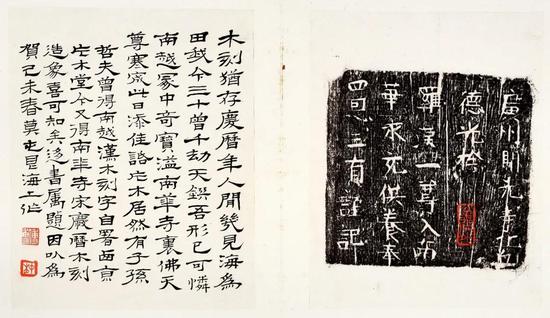 廣州
德光捨
羅漢一尊入南
華永充供養奉
四恩三有謹記
木刻猶存慶曆年人間幾見海為
田我今三十曾千劫天錫吾形已可憐
南越冢中奇寶溢南華寺裏佛天
尊寒家此日添佳話木居然有子孫
哲夫曾得南越漢木刻字自署西京
木堂今又得南華寺宋慶曆木刻
造象喜可知矣迻書屬題因以為
賀己未春莫屯艮海上作